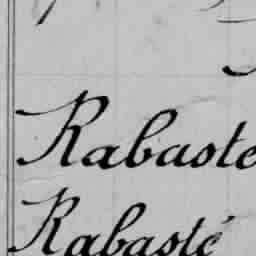 Rabaste
Rabasté